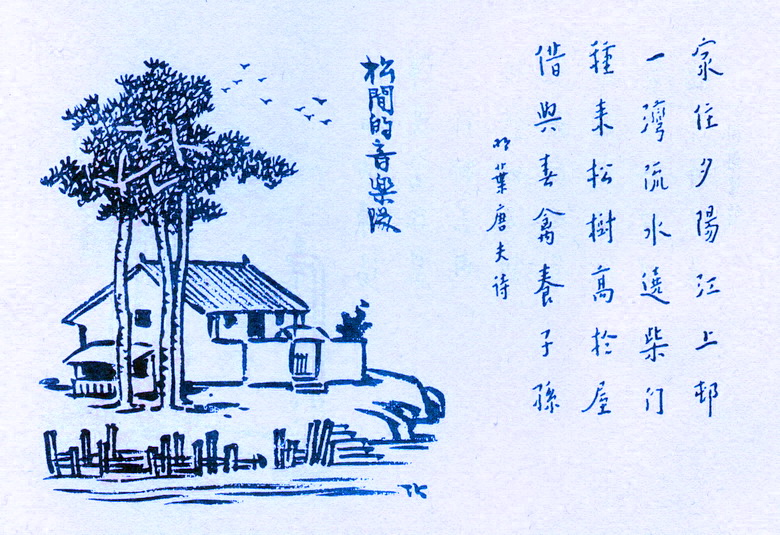 家住夕陽江上邨
一灣流水遶柴门
種来松樹高於屋
借與春禽養子孫
明葉唐夫诗
松間的音樂隊
TK